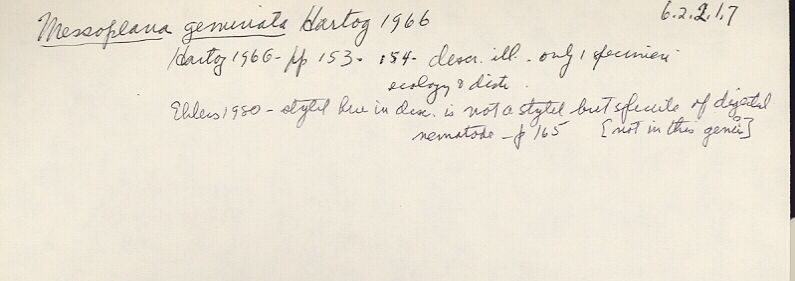 Messoplana geminata Hartog 1966 6.2.2.1.7
Hartog 1966 - pp 153 - 154 - descr. ill. - only 1 specimen
ecology & distr.
Ehlers 1980 - stylet here in desc. is not a stylet but spicule of digested
nematode - p 165 [not in this genus?]